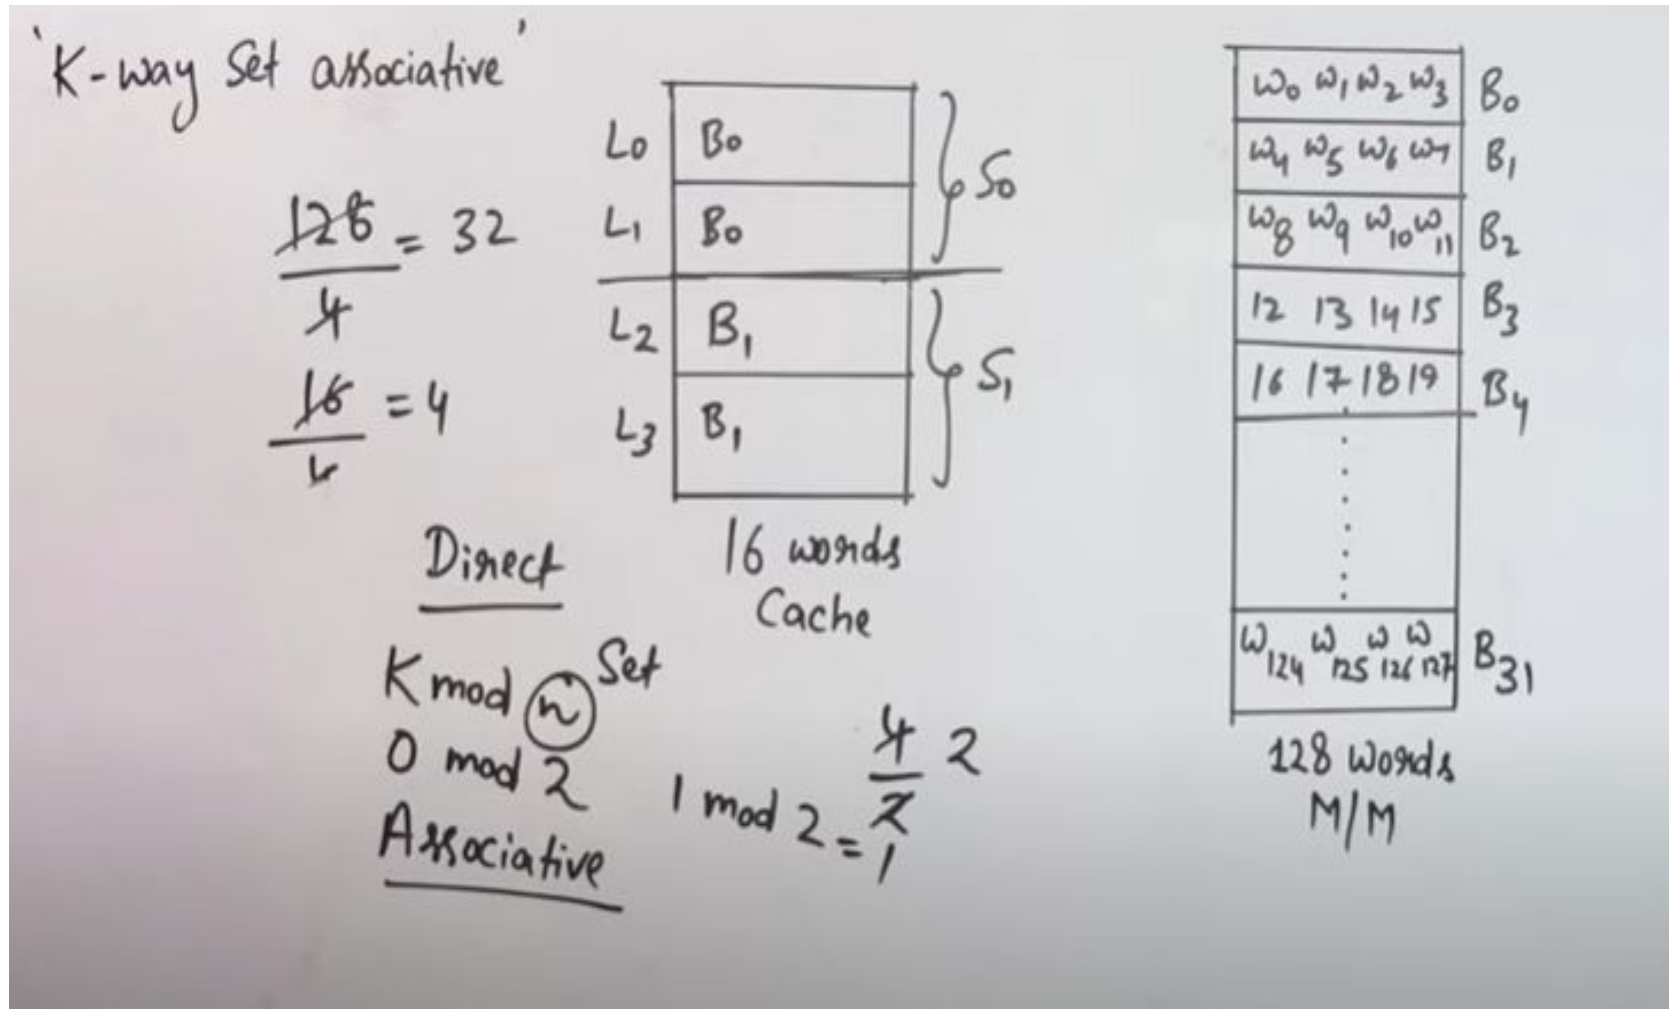 'K-way Set associative'
128/4 = 32
16/4 = 4
L0 B0
L1 B0
S0
L2 B1
L3 B1
S1
16 words
Cache
Direct
K mod n Set
0 mod 2
1 mod 2 = 1
4/2 2
Associative
W0 W1 W2 W3 B0
W4 W5 W6 W7 B1
W8 W9 W10 W11 B2
12 13 14 15 B3
16 17 18 19 B4
W124 W125 W126 W127 B31
128 words
M/M